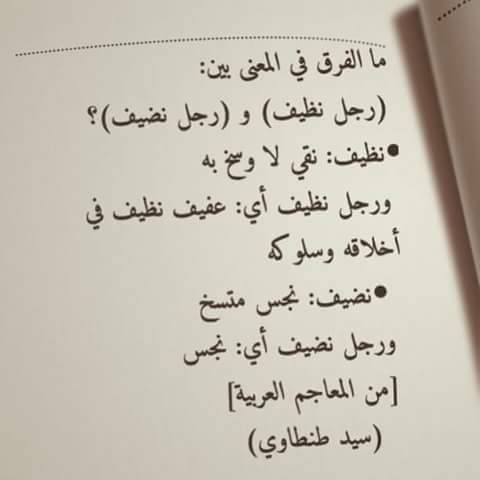 ما الفرق في المعنى بين:
(رجل نظيف) و (رجل نضيف)؟
● نظيف: نقي لا وسخ به
ورجل نظيف أي: عفيف نظيف في
أخلاقه وسلوكه
● نضيف: نجس متسخ
ورجل نضيف أي: نجس
[من المعاجم العربية]
(سيد طنطاوي)